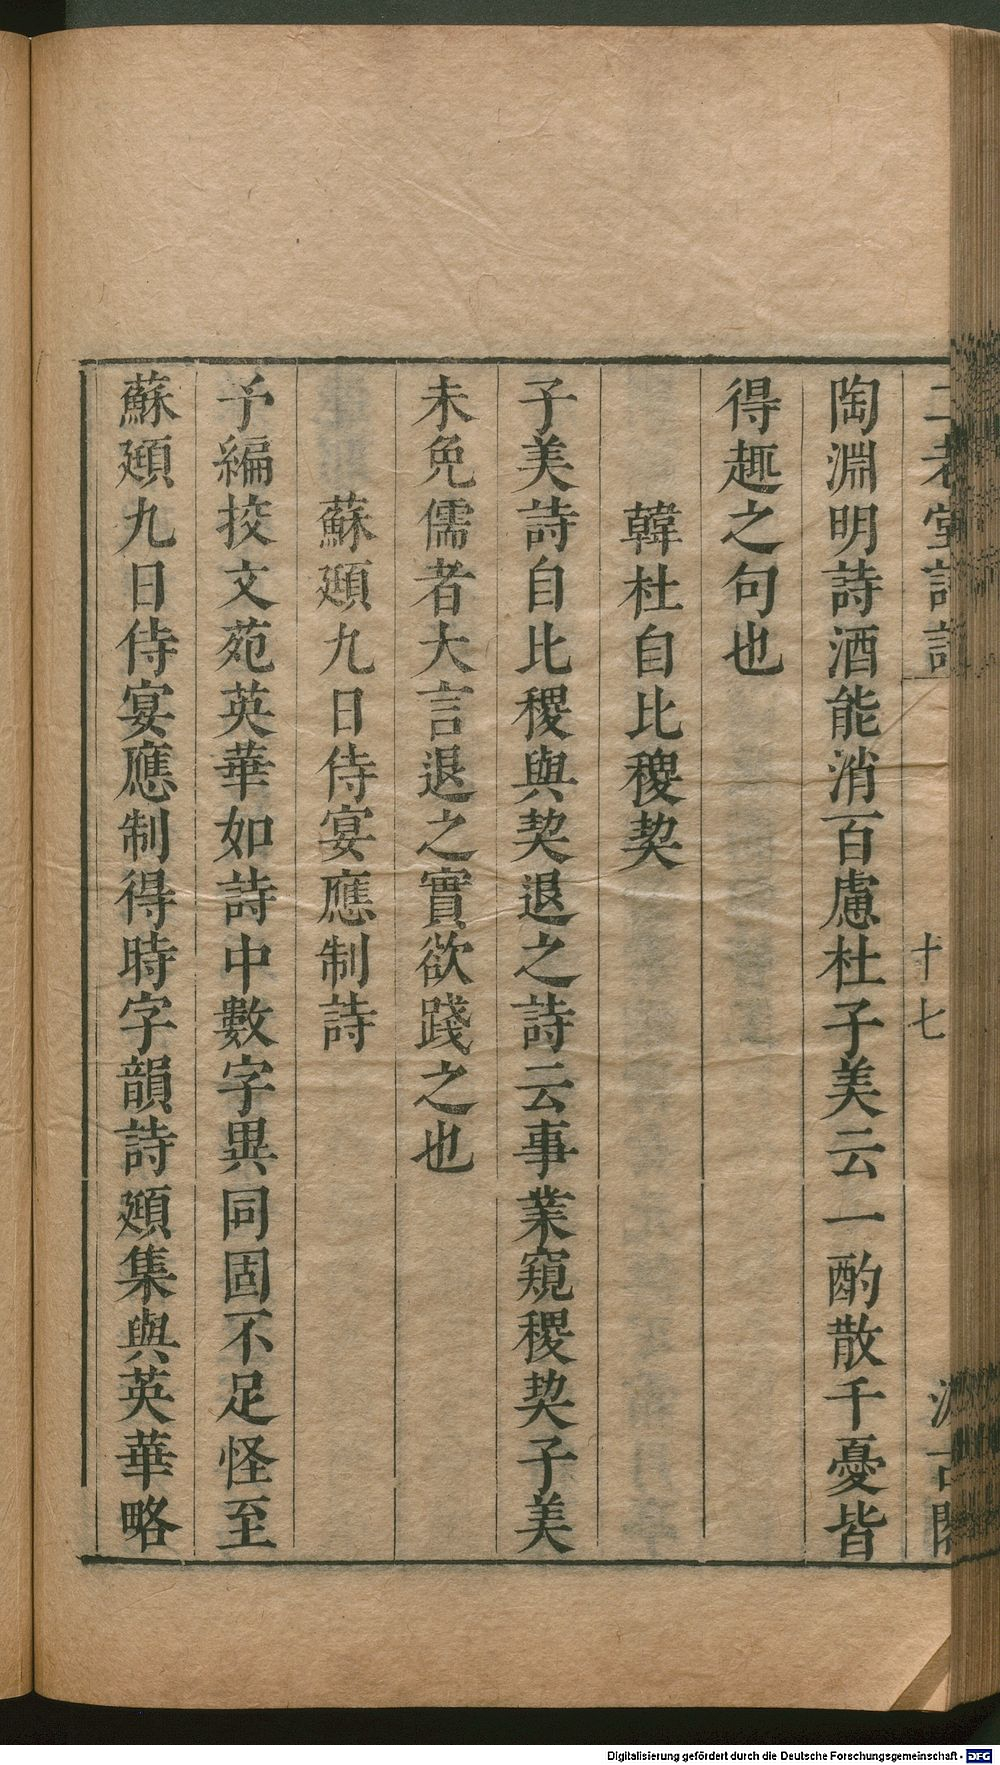 二老堂詩話
十七
汲古閣
陶淵明詩酒能消百慮杜子美云一酌散千憂皆
得趣之句也
韓杜自比稷契
子美詩自比稷與契退之詩云事業窺稷契子美
未免儒者大言退之實欲踐之也
蘇頲九日侍宴應制詩
予編挍文苑英華如詩中數字異同固不足怪至
蘇頲九日侍宴應制得時字韻詩頲集與英華略
Digitalisierung gefördert durch die Deutsche Forschungsgemeinschaft - DFG